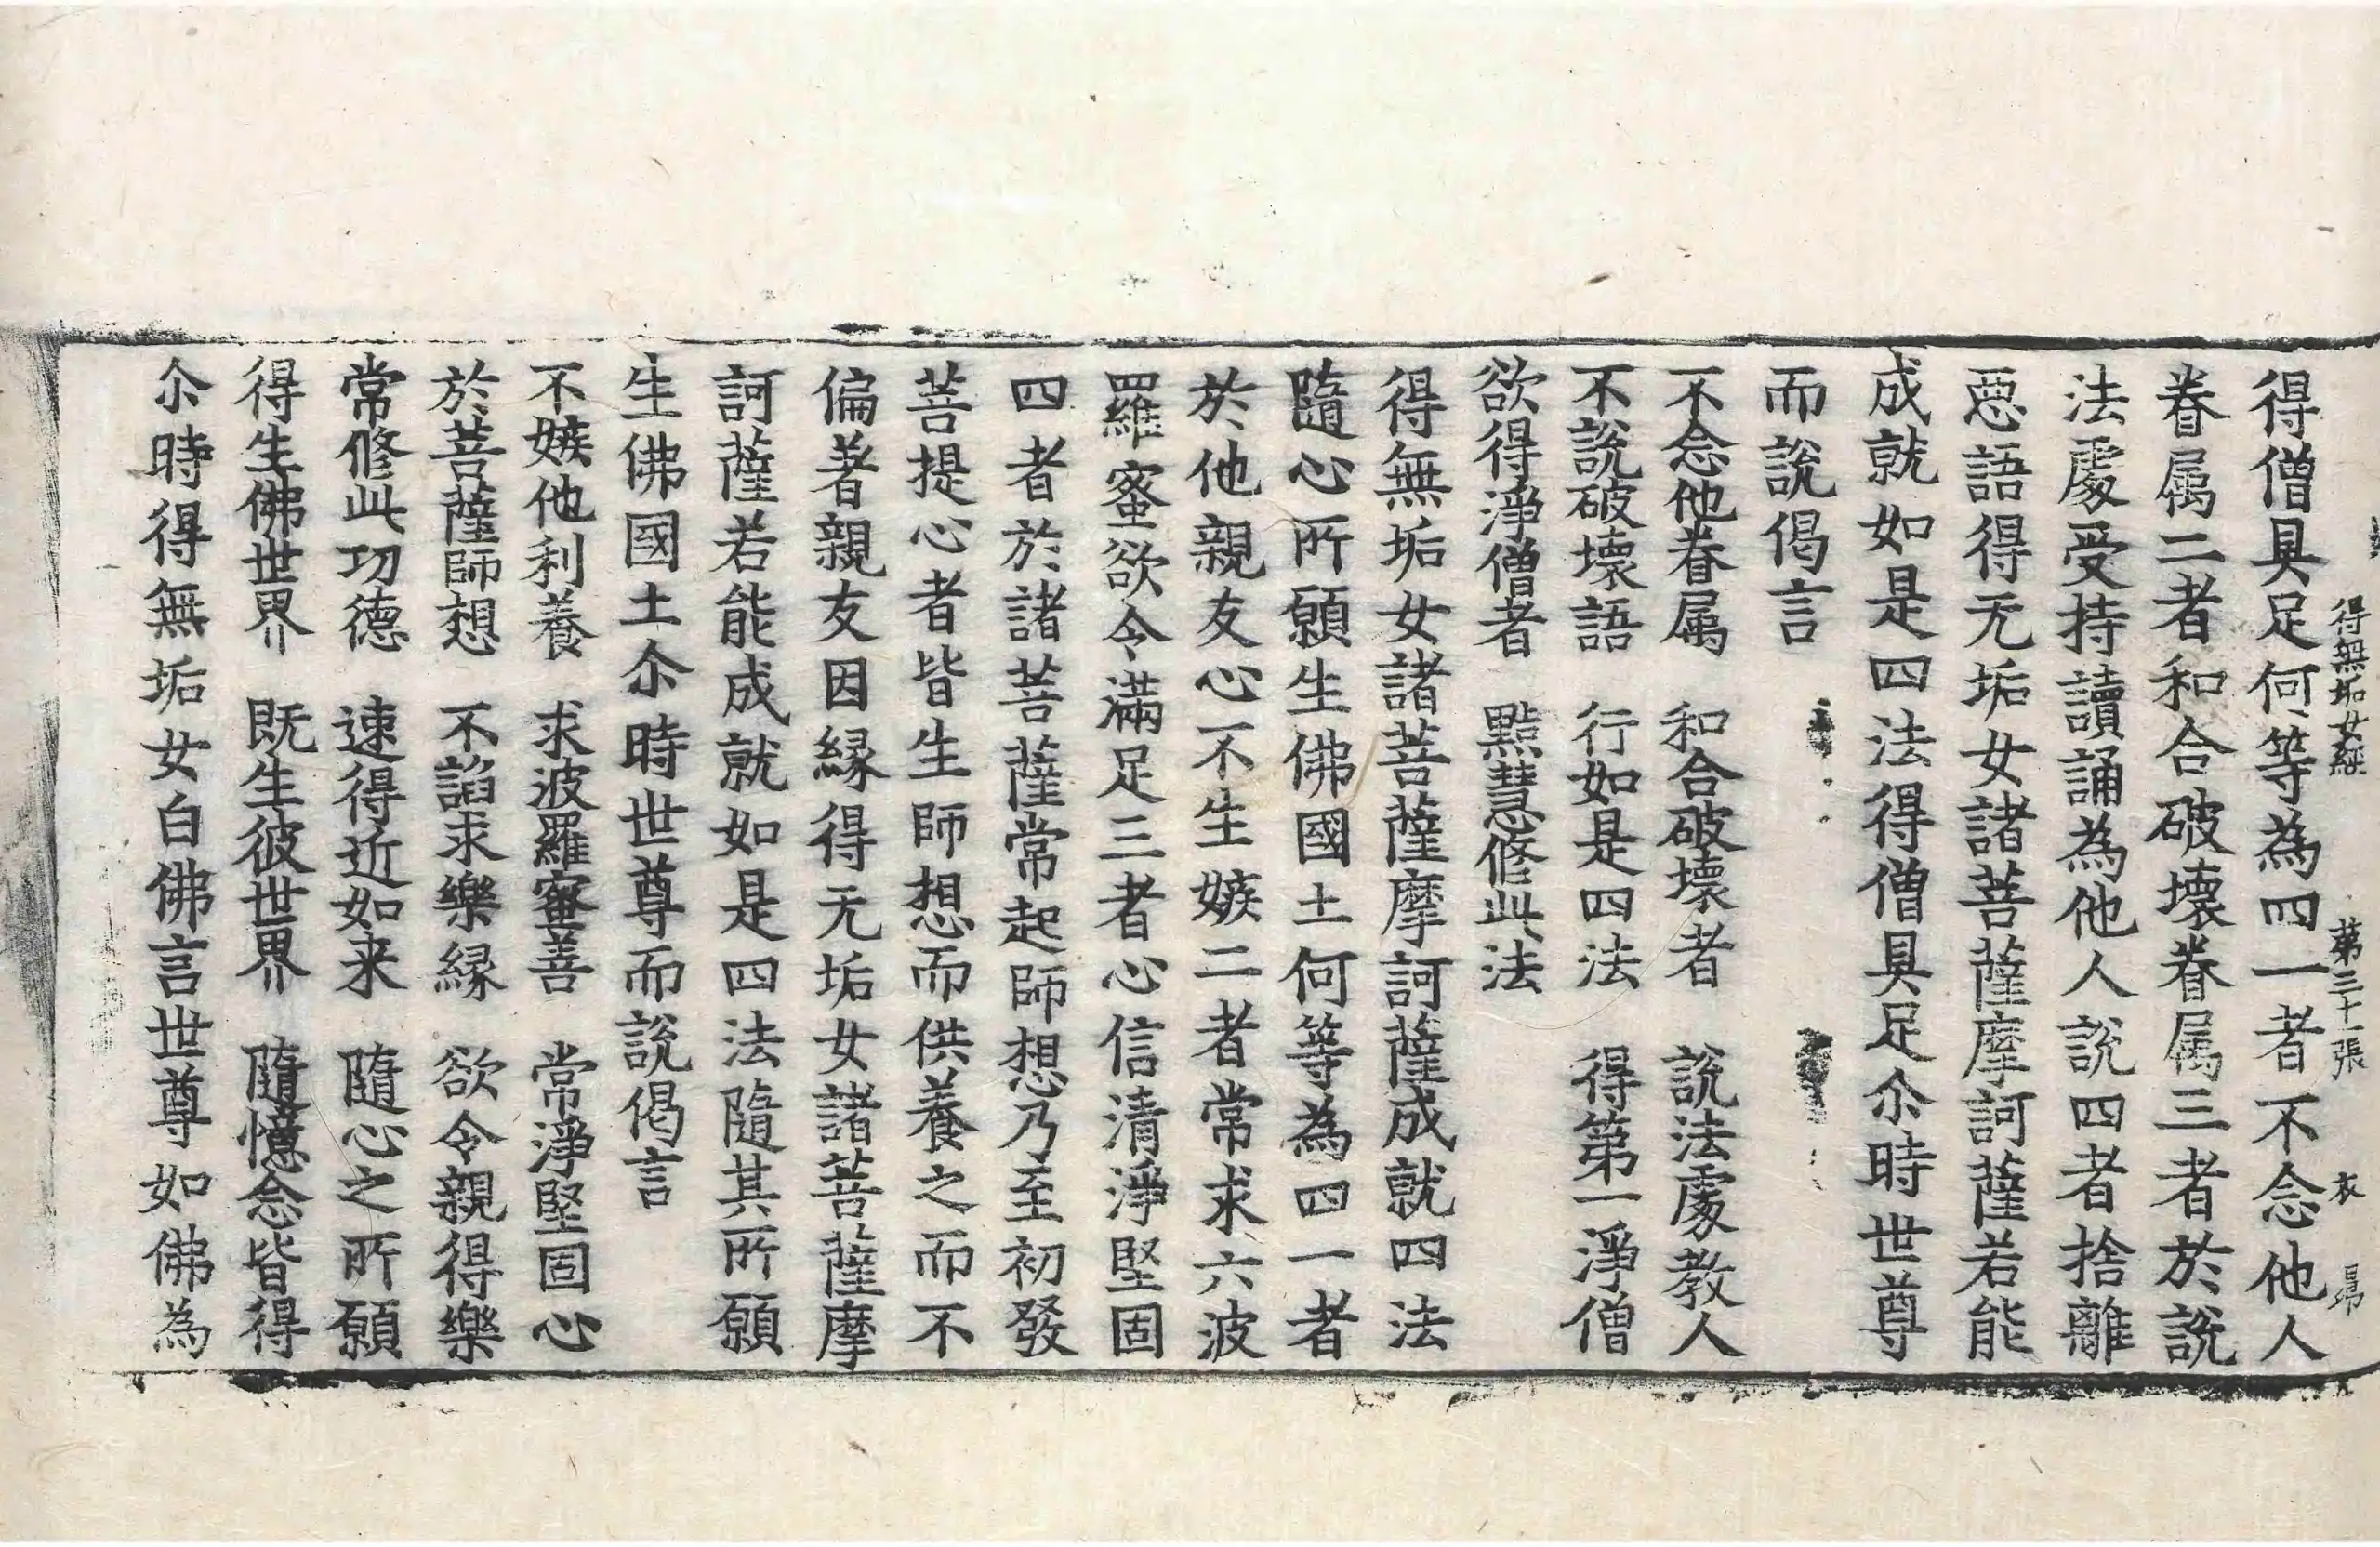 得無垢女經　第三十一張　衣　昂
得僧具足何等為四一者不念他人
眷属二者和合破壞眷属三者於說
法處受持讀誦為他人說四者捨離
惡語得无垢女諸菩薩摩訶薩若能
成就如是四法得僧具足尒時世尊
而說偈言
不念他眷属　和合破壞者　說法處教人
不說破壞語　行如是四法　得第一淨僧
欲得淨僧者　黠慧修此法
得無垢女諸菩薩摩訶薩成就四法
隨心所願生佛國土何等為四一者
於他親友心不生嫉二者常求六波
羅蜜欲令滿足三者心信清淨堅固
四者於諸菩薩常起師想乃至初發
菩提心者皆生師想而供養之而不
偏著親友因緣得无垢女諸菩薩摩
訶薩若能成就如是四法隨其所願
生佛國土尒時世尊而說偈言
不嫉他利養　求波羅蜜善　常淨堅固心
於菩薩師想　不諂求樂緣　欲令親得樂
常修此功德　速得近如来　隨心之所願
得生佛世界　既生彼世界　隨憶念皆得
尒時得無垢女白佛言世尊如佛為